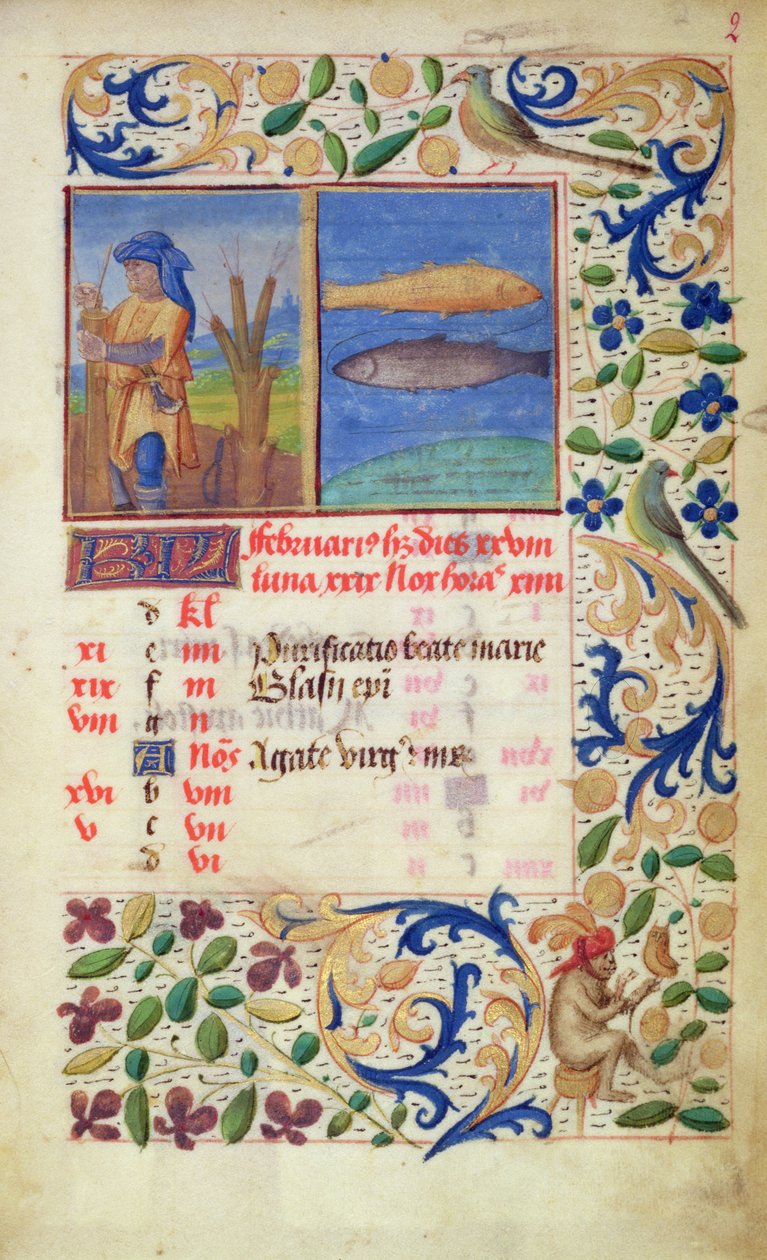 2
KL
ffebruari⁹ hʒ dies xxviii
luna xxix Nox horaˢ xiiii
d kl
xi e iiii Purificatio beate marie
xix f iii Blasii epi
viii g ii
A Noñs Agate virg⁹ ⁊ mr̃
xvi b viii
v c vii
d vi